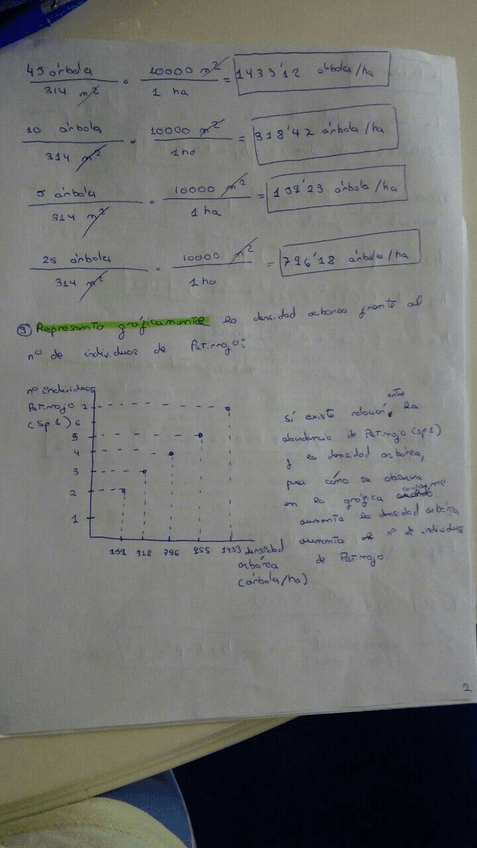 45 árbola / 314 m² · 10000 m² / 1 ha = 1433'12 árbola/ha
10 árbola / 314 m² · 10000 m² / 1 ha = 318'42 árbola/ha
5 árbola / 314 m² · 10000 m² / 1 ha = 159'23 árbola/ha
25 árbola / 314 m² · 10000 m² / 1 ha = 796'18 árbola/ha
Representa gráficamente la densidad arborea frente al
nº de individuos de Petirrojo:
nº individuos
Petirrojo
(sp 1)
7
6
5
4
3
2
1
159 318 796 955 1433 densidad
arbórea
(árbola/ha)
Si existe relación entre la
abundancia de Petirrojo (sp 1)
y la densidad arbórea,
pues cómo se observa
en la gráfica conforme
aumenta la densidad arbórea
aumenta el nº de individuos
de Petirrojo.
2